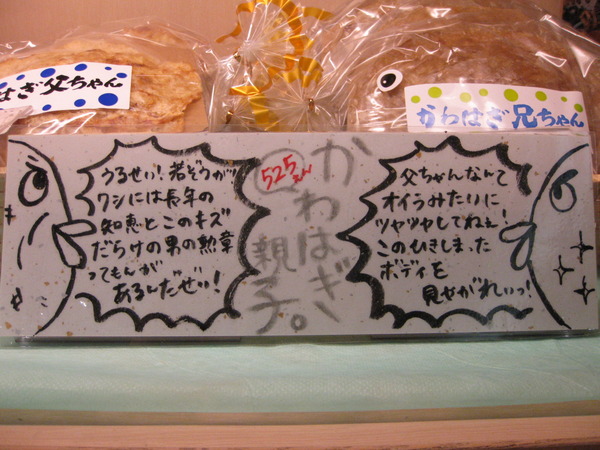 はぎ父ちゃん
かわはぎ兄ちゃん
父ちゃんなんて
オイラみたいに
ツヤツヤしてねぇ!
このひきしまった
ボディを
見せがれいっ!
かわはぎ
親子。
525えん
うるせい!若ぞうが
ワシには長年の
知恵とこのキズ
だらけの男の勲章
ってもんが
あるんだぜい!